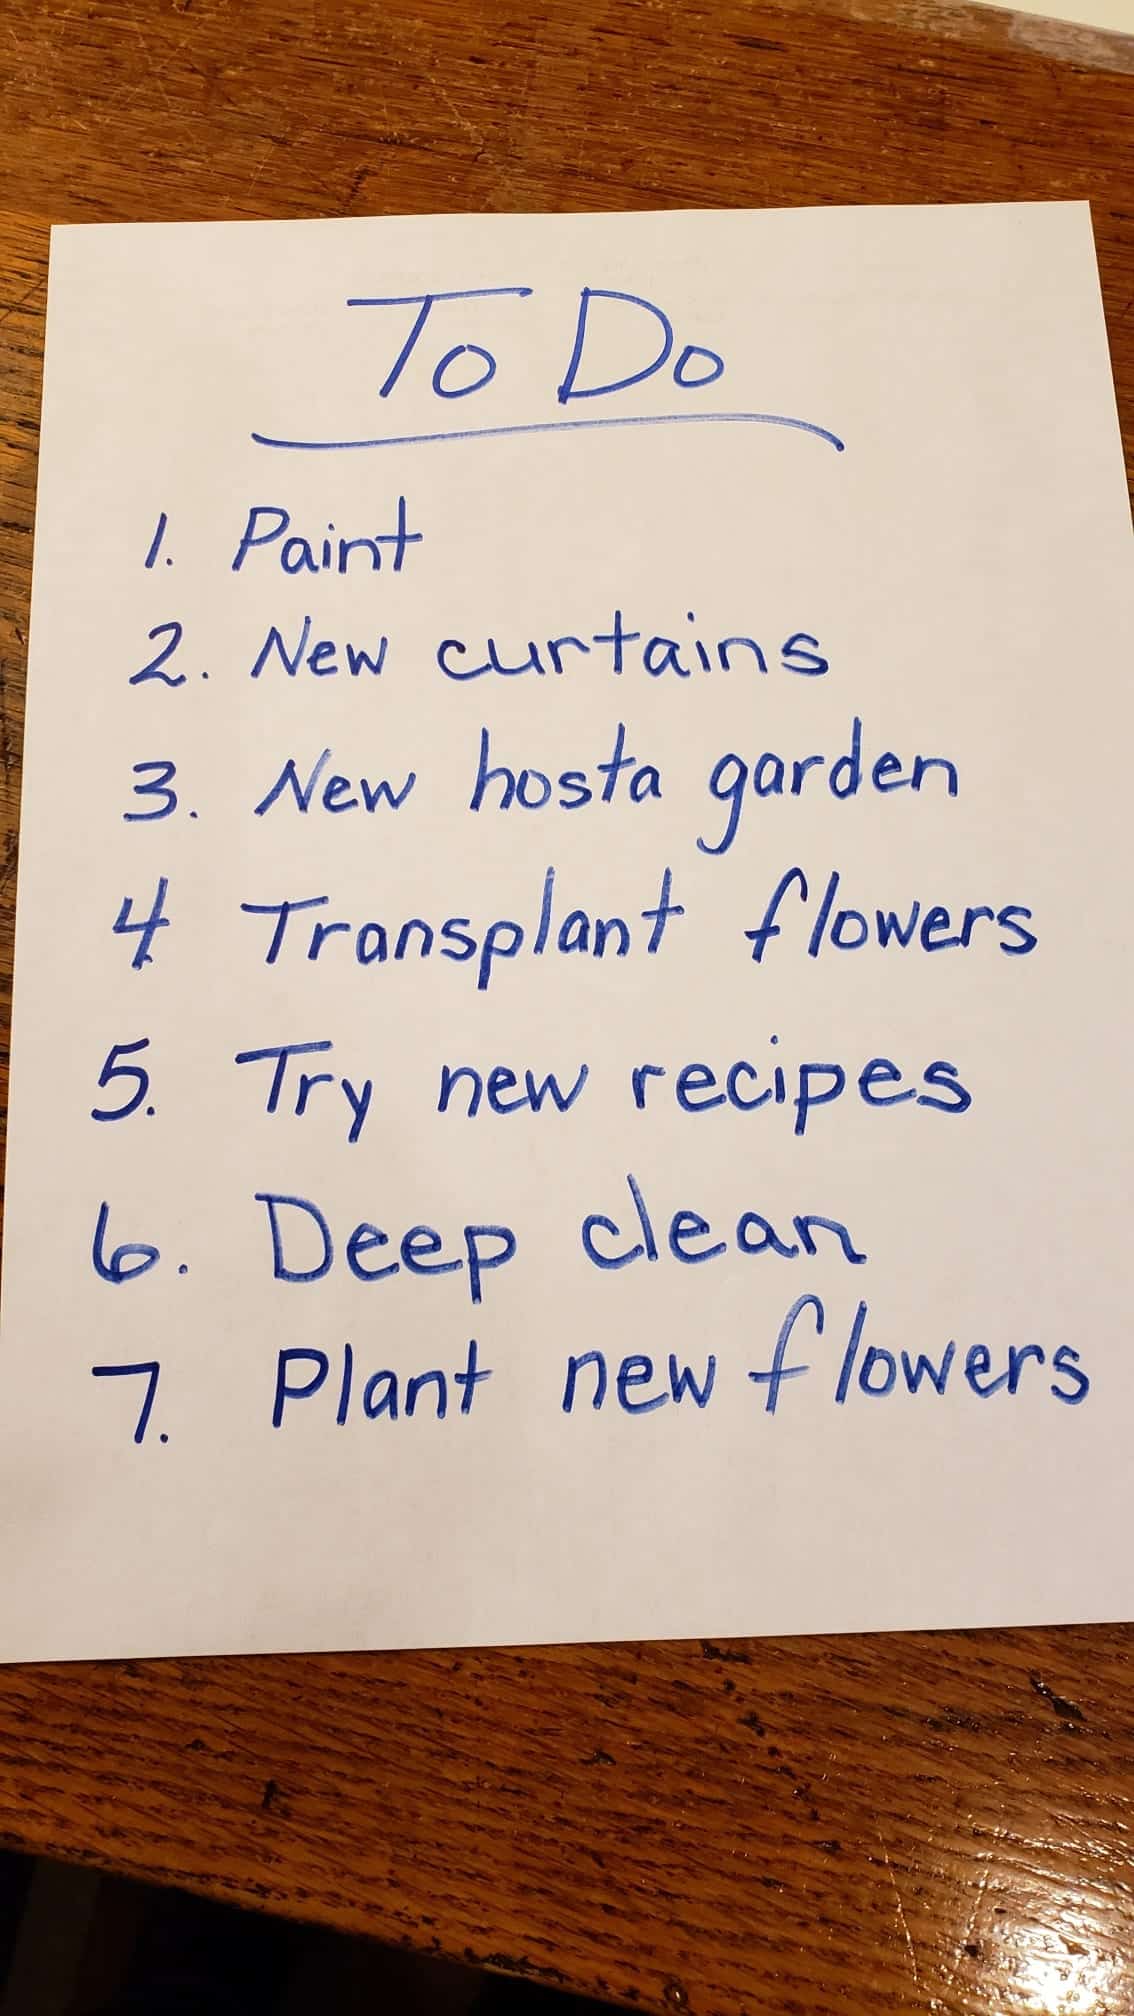 To Do
1. Paint
2. New curtains
3. New hosta garden
4 Transplant flowers
5. Try new recipes
6. Deep clean
7. Plant new flowers